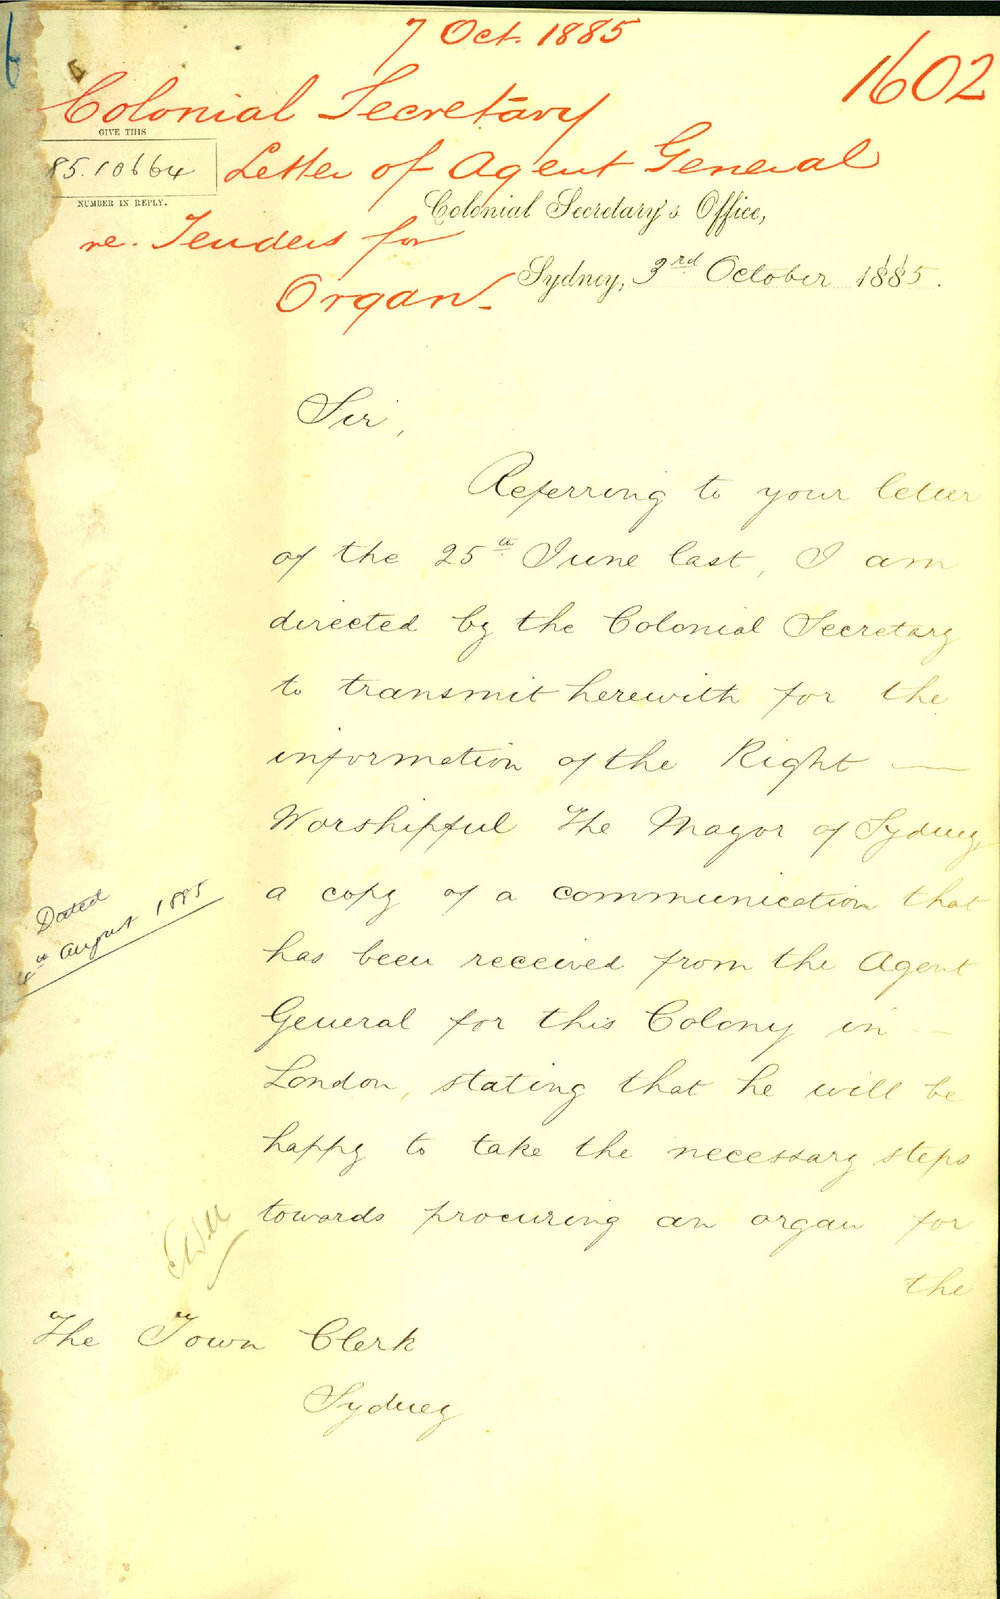 7 Oct. 1885
1602
Colonial Secretary
GIVE THIS
85.10664
NUMBER IN REPLY.
Letter of Agent General
Colonial Secretary's Office,
re. Tenders for
Organ.
Sydney, 3rd October 1885.
Sir,
Referring to your letter
of the 25th June last, I am
directed by the Colonial Secretary
to transmit herewith for the
information of the Right —
Worshipful The Mayor of Sydney
a copy of a communication that
Dated
August 1885
has been received from the Agent
General for this Colony in —
London, stating that he will be
happy to take the necessary steps
towards procuring an organ for
the
The Town Clerk
Sydney